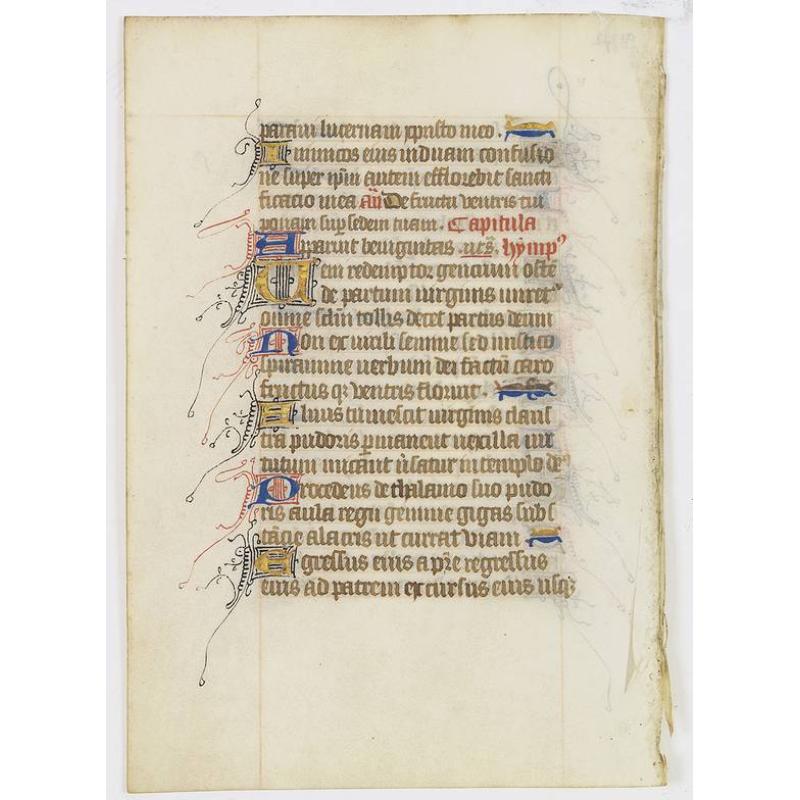 paravi lucernam xpristo meo.
Inimicos eius induam confusio
ne super ipm autem efflorebit sancti
ficacio mea añ De fructu ventris tui
ponam sup sedem tuam. Capitula
Apparuit benignitas. ut s. hymp9
Veni redemptor gencium osten
de partum virginis miret
omne sclm tollis decet partus deum
Non ex virili semine sed mistico
spiramine verbum dei factū caro
fructus qz ventris floruit.
Alvus tumescit virginis claus
tra pudoris pmanent vexilla vir
tutum micant vsatur in templo de9
Procedens de thalamo suo pudo
ris aula regia gemine gigas subs
tācie alacris ut currat viam
Egressus eius a pre regressus
eius ad patrem excursus eius usqz